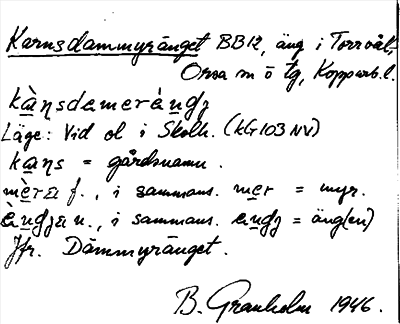 Karnsdammyränget BB12, äng i Torrvål,
Orsa sn ö tg, Kopparb. l.
kàṇsdamerèṇgʒ
Läge: Vid ol i Skolh. (KG103 NV)
kaṇs = gårdsnamn.
mèra f., i sammans. mer = myr.
èngʒa n., i sammans. engʒ = äng(en)
Jfr. Dammyränget.
B. Granholm 1946.